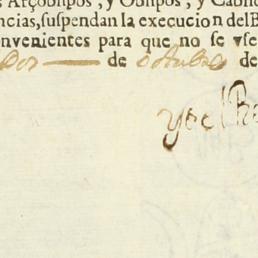 Arçobispos, y Obispos, y Cabil
ncias, suspendan la execucion del B
onvenientes para que no se vse
dos — de octubre de
yo el Re